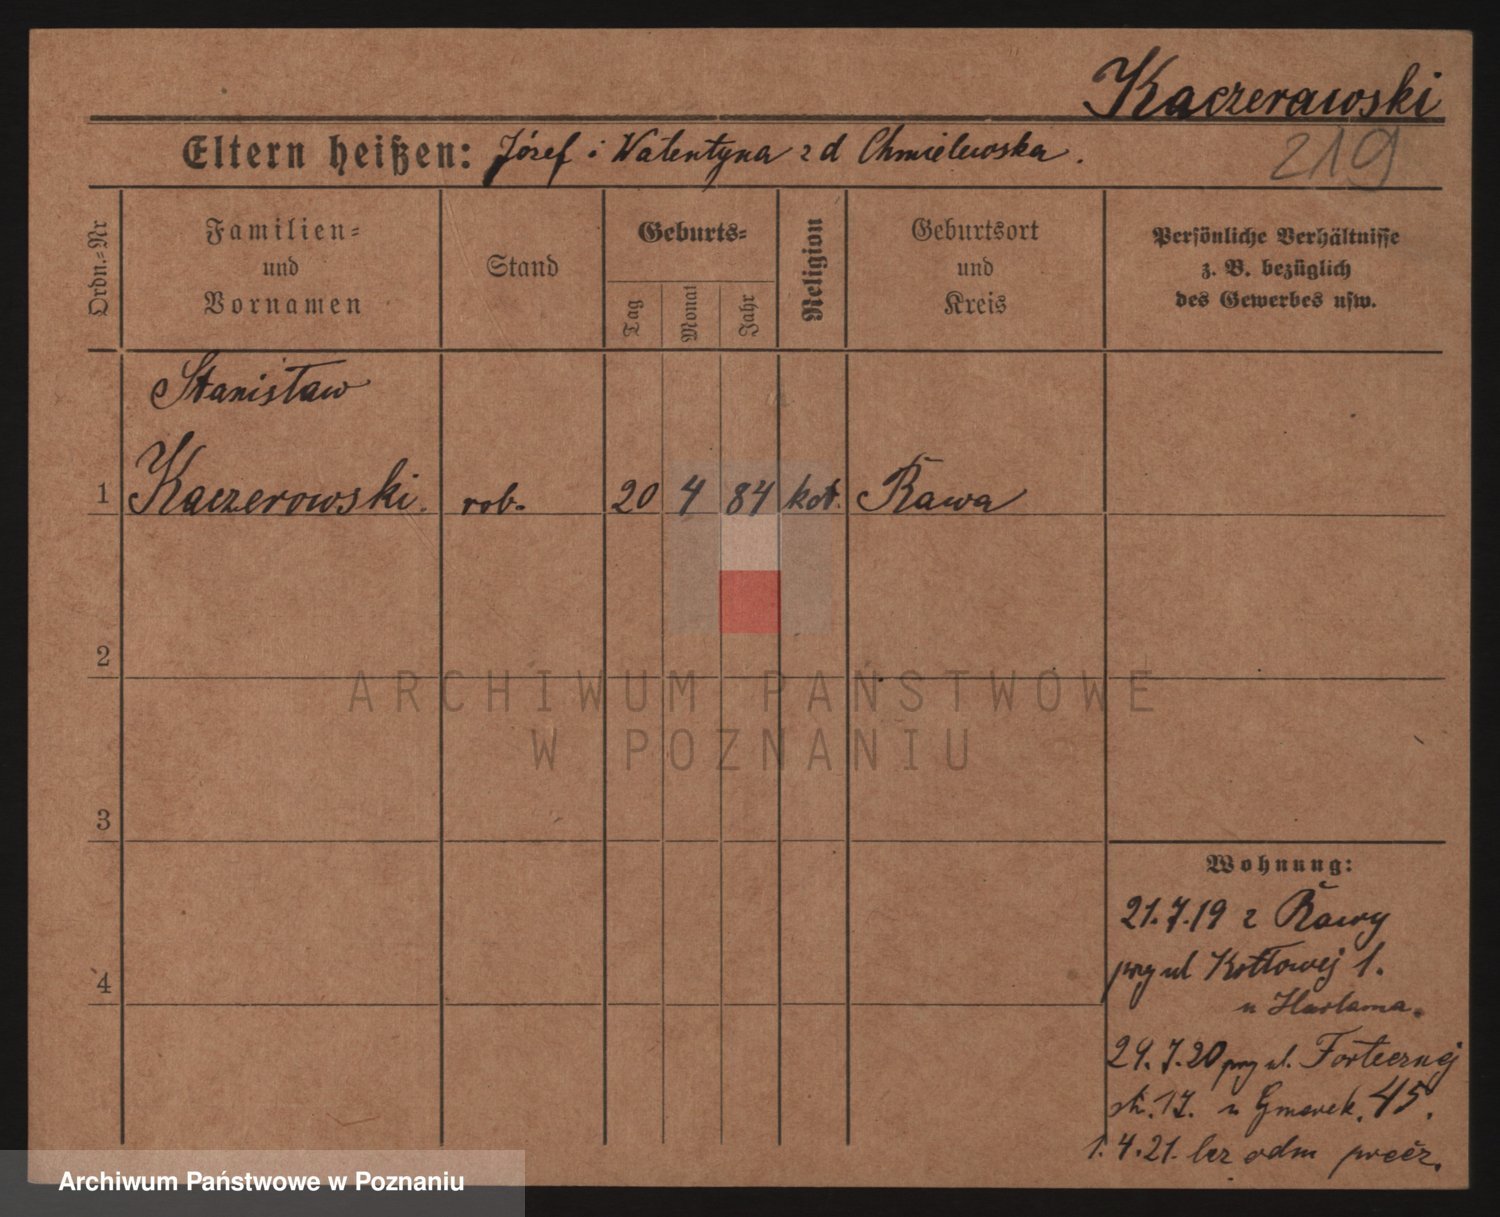 Kaczerawski
Eltern heißen: Józef i Walentyna z d Chmielewska.
219
Ordn.=Nr
Familien=
und
Vornamen
Stand
Geburts=
Tag
Monat
Jahr
Religion
Geburtsort
und
Kreis
Persönliche Verhältnisse
z. B. bezüglich
des Gewerbes usw.
Stanisław
1 Kaczerowski. rob. 20 4 84 kat. Rawa
2
3
4
Wohnung:
21.7.19 z Rawy
przy ul Kotłowej 1.
u Harlama.
29.7.20 przy ul. Fortecznej
str. 17. u Gmerek. 45.
1.4.21. bez odm precz.
ARCHIWUM PAŃSTWOWE
W POZNANIU
Archiwum Państwowe w Poznaniu